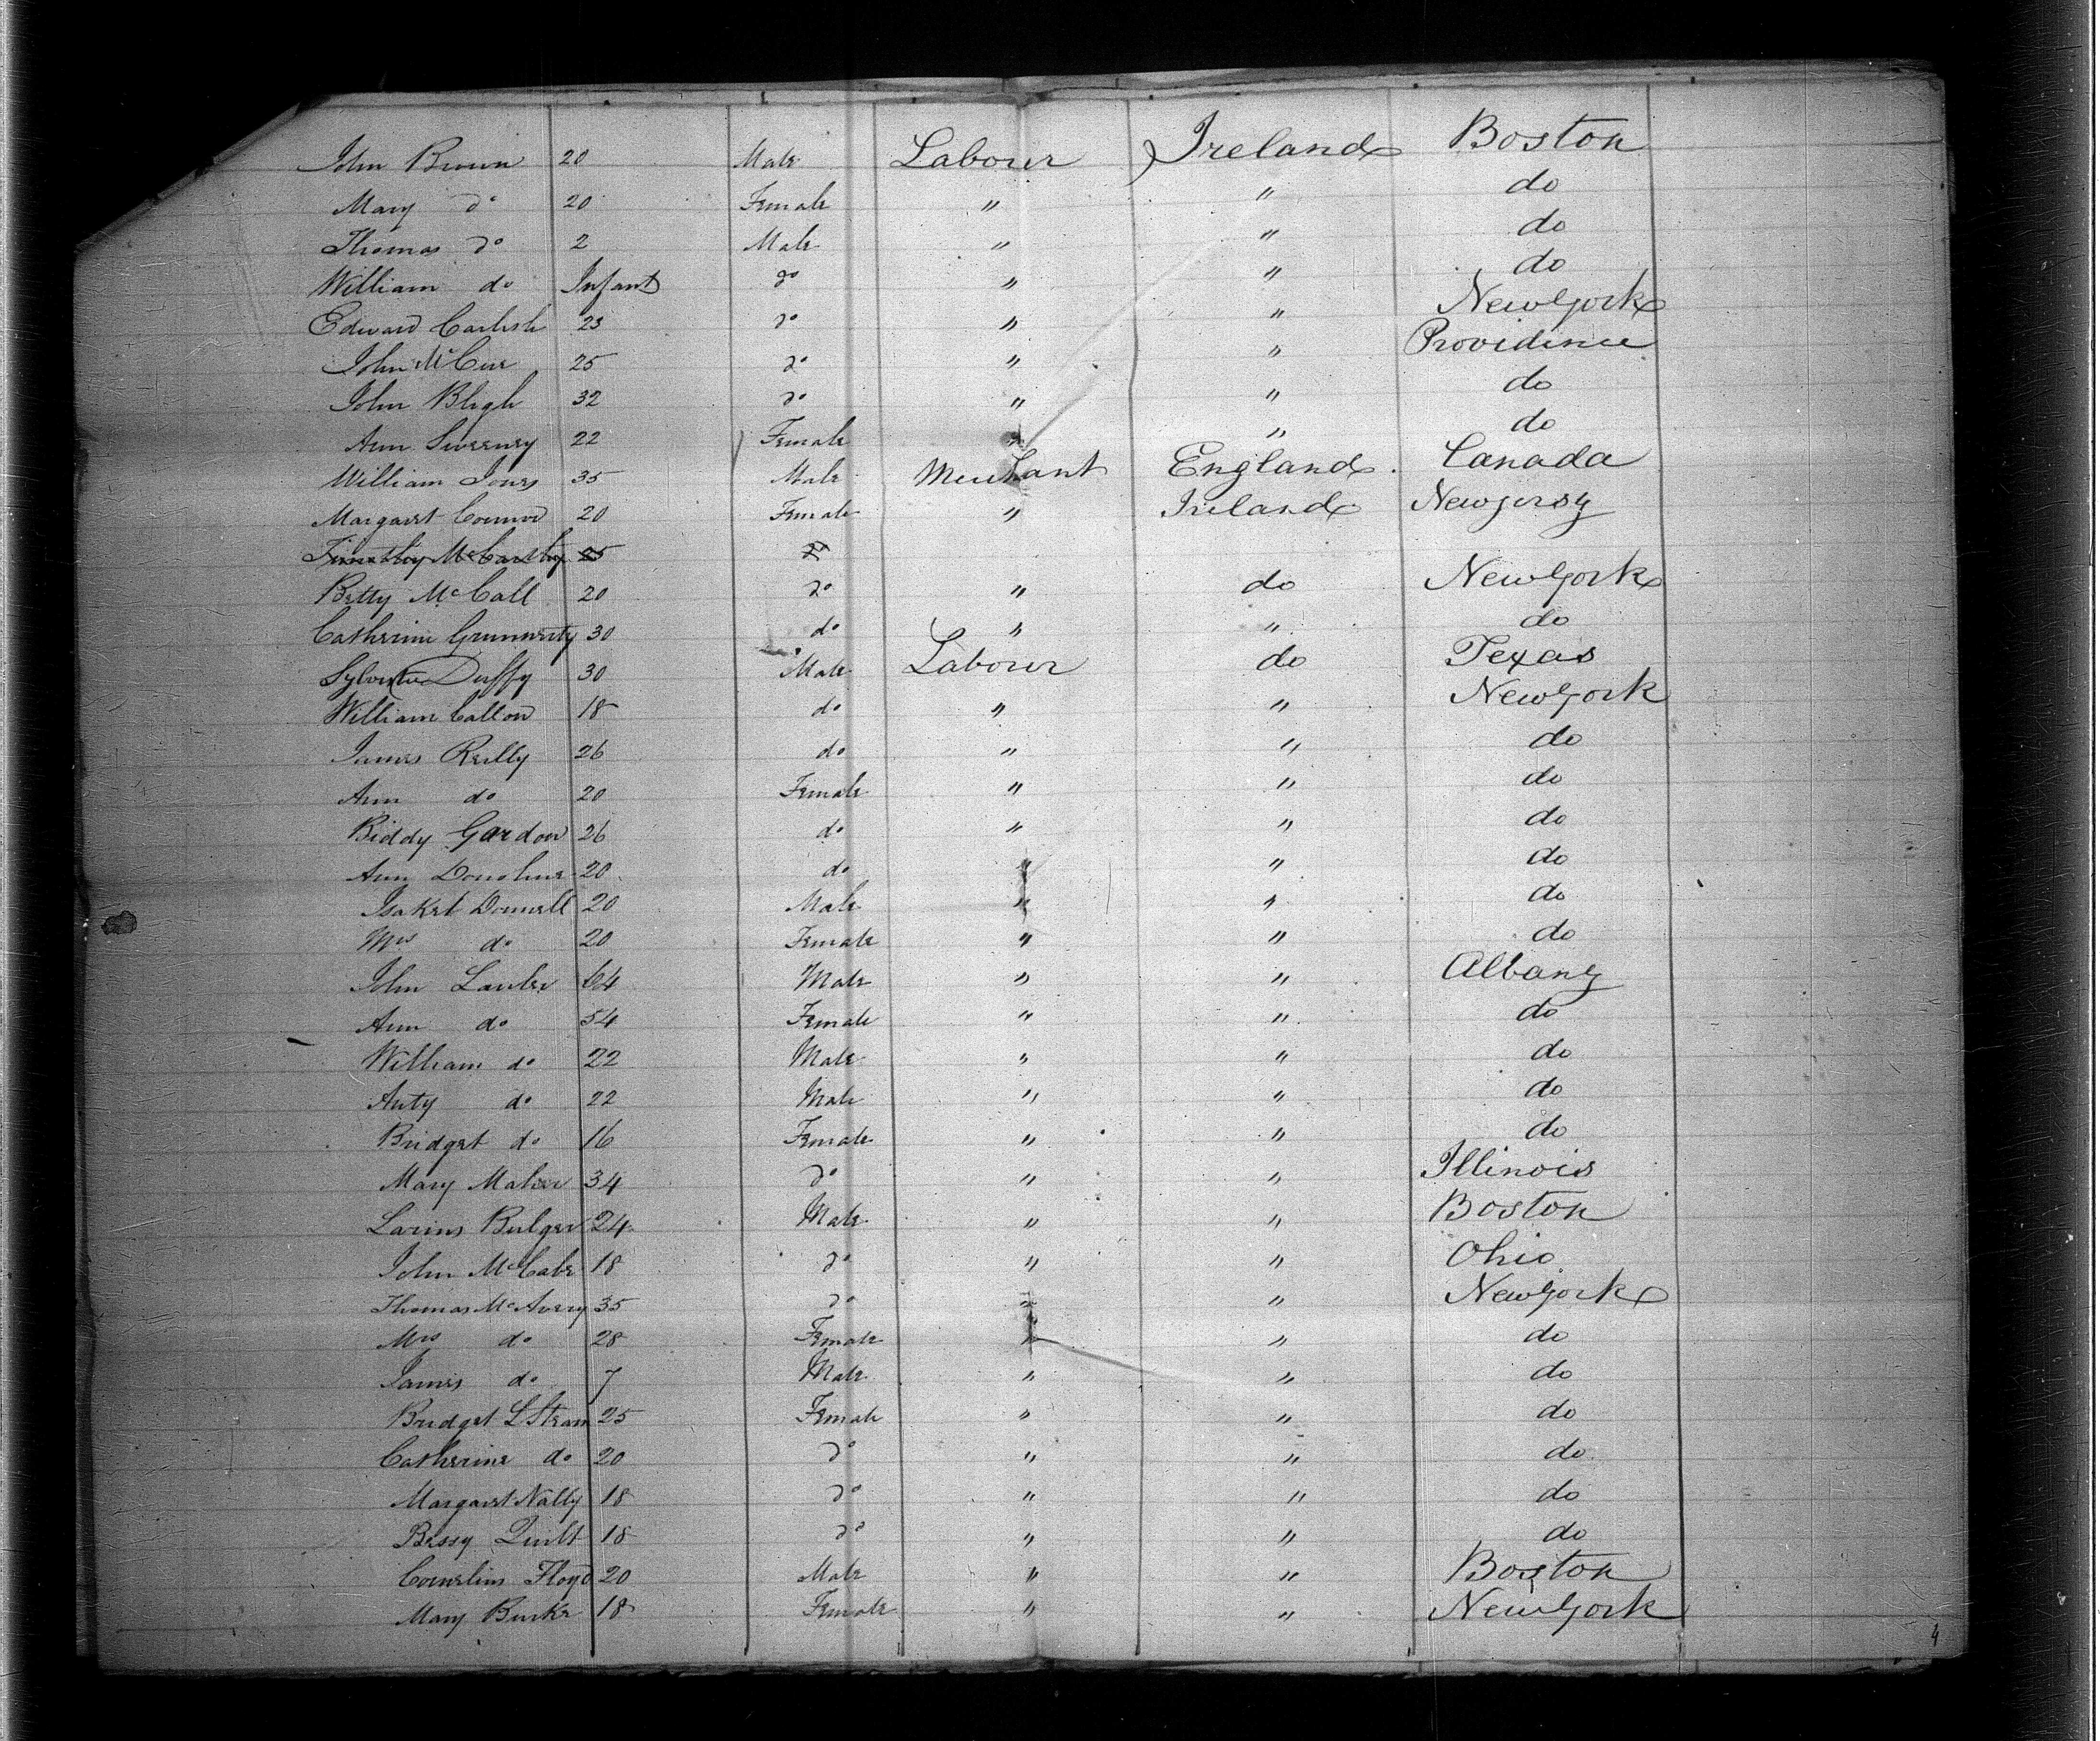 John Brown 20 Male Labourer Ireland Boston
Mary do 20 Female " " do
Thomas do 2 Male " " do
William do Infant do " " do
Edward Carlish 23 do " " New York
John McCue 25 do " " Providence
John Bligh 32 do " " do
Ann Sweeney 22 Female " " do
William Jones 35 Male Merchant England Canada
Margaret Connor 20 Female " Ireland New Jersy
Timothy McCarthy 25
Betty McCall 20 do " do New York
Catherine 30 do " " do
Sylvester Duffy 30 Male Labourer do Texas
William 18 do " " New York
James Reilly 26 do " " do
Ann do 20 Female " " do
Biddy Gordon 26 do " " do
Ann 20 do " " do
Donnell 20 Male " " do
Mrs do 20 Female " " do
John Lawler 64 Male " " Albany
Ann do 54 Female " " do
William do 22 Male " " do
Anty do 22 Male " " do
Bridget do 16 Female " " do
Mary Maher 34 do " " Illinois
Bulger 24 Male " " Boston
John McCabe 18 do " " Ohio
Thomas McAvery 35 do " " New York
Mrs do 28 Female " " do
James do 7 Male " " do
Bridget 25 Female " " do
Catherine do 20 do " " do
Margaret Nally 18 do " " do
Bessy Quilt 18 do " " do
Cornelius Floyd 20 Male " " Boston
Mary Burke 18 Female " " New York
4